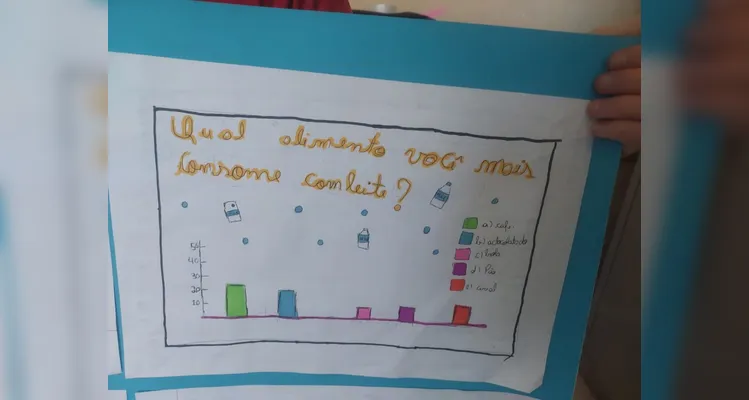 Qual alimento você mais
Consome com leite?
a) café
b) achocolatado
d) Pão
e) cereal
40
30
20
10